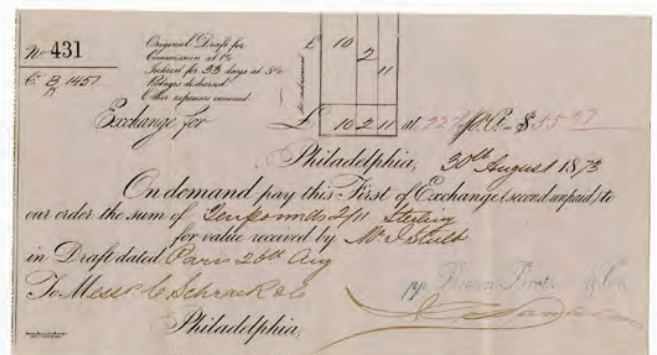 No 431
Original Draft for £ 10 2 11
Commission at 1%
Interest for 33 days at 5%
Postages disbursed
Other expenses incurred
Exchange for £ 10 2 11 at 227 - $ 55 97
Philadelphia, 30th August 1873
On demand pay this First of Exchange (second unpaid) to
our order the sum of Ten pounds 2/11 Sterling
for value received by Mr J
in Draft dated Paris 26th Aug
To Messrs C Schrack & Co
Philadelphia, pp Brown Brothers & Co